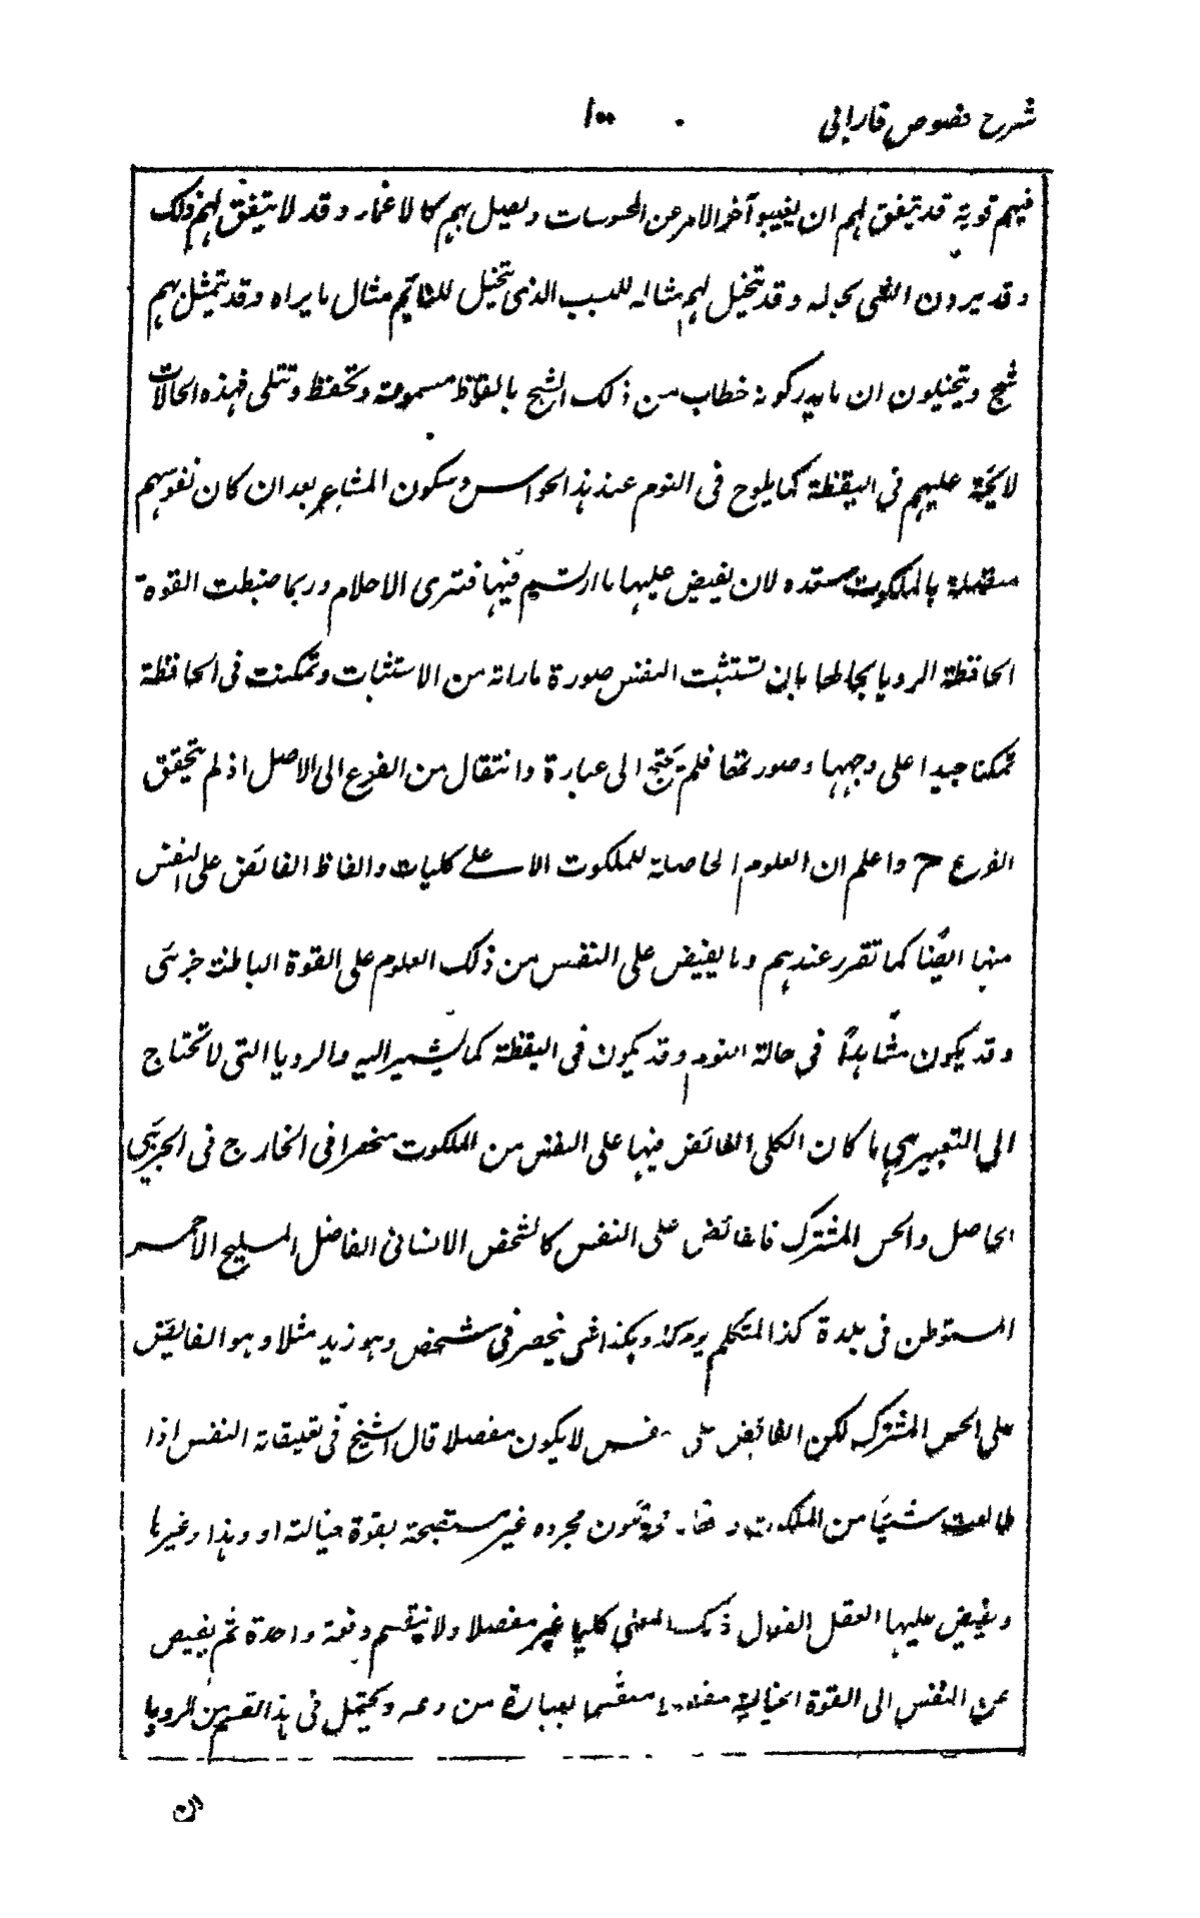 شرح فصوص فارابى ١٠٠
فيهم قوية قد يتفق لهم ان يغيبوا آخر الامر عن المحسوسات ويصيل بهم كالاغماء وقد لا يتفق لهم ذلك
وقد يرون الشى بحاله وقد تخيل لهم مثاله للسبب الذى تخيل للنائم مثال ما يراه وقد تمثل بهم
شبح ويتخيلون ان ما يدركونه خطاب من ذلك الشبح بالفاظ مسموعة وتحفظ وتتلى فهذه الحالات
لايحة عليهم فى اليقظة كما يلوح فى النوم عند هذ الحواس وسكون المشاعر بعد ان كان نفوسهم
متصلة بالملكوت مستعده لان يفيض عليها ما ارتسم فيها فترى الاحلام وربما ضبطت القوة
الحافظة الرويا بحالها بان تستثبت النفس صورة ماراته من الاستثبات وتمكنت فى الحافظة
تمكنا جيدا على وجهها وصورتها فلم يحتج الى عبارة وانتقال من الفرع الى الاصل اذ لم يتحقق
الفرع ح واعلم ان العلوم الحاصلة للملكوت الاعلى كليات والفاظ الفائض على النفس
منها ايضا كما تقرر عندهم وما يفيض على النفس من ذلك العلوم على القوة الباطنة جزئى
وقد يكون مشاهدًا فى حالة النوم وقد يكون فى اليقظة كما يشير اليه والرويا التى لا تحتاج
الى التعبير هى ما كان الكلى الفائض فيها على النفس من الملكوت منحصرا فى الخارج فى الجزئى
الحاصل والحس المشترك فالفائض على النفس كالشخص الانسانى الفاضل المسليح الاحمر
المستوطن فى بلدة كذا المتكلم يوم كذا وهكذا شى ينحصر فى شخص وهو زيد مثلا وهو الفائض
على الحس المشترك لكن الفائض على نفس لا يكون مفصلا قال الشيخ فى تعليقاته النفس اذا
طالعت شيئا من الملكوت مجرده غير مستصحبة بقوة خيالته او وهذا وغيرها
ويفيض عليها العقل الفعال ذلك المعنى كليا غير مفصلا ولا ينقسم دفعة واحدة ثم يفيض
عن النفس الى القوة الخيالية منقسما بعبارة من وعه ويحتمل فى هذ القسم من الرويا